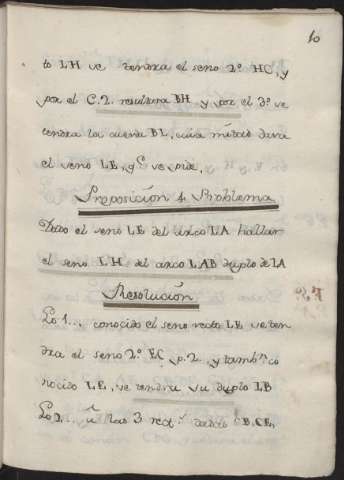 10
to LH se tendra el seno 2º HC, y
por el C.2. resultara BH y por el 3º se
tendra la cuerda BL, cuia mitad dara
el seno LE, q.e se pide.
Proposicion 4 Problema
Dado el seno LE del arco LA hallar
el seno LH del arco LAB duplo de LA
Resolucion
Lo 1... conocido el seno recto LE se ten
dra el seno 2º EC, p. 2. y tambn co
nocido LE, se tendra su duplo LB
Lo 2... a las 3 rect.s dadas CB, CE,